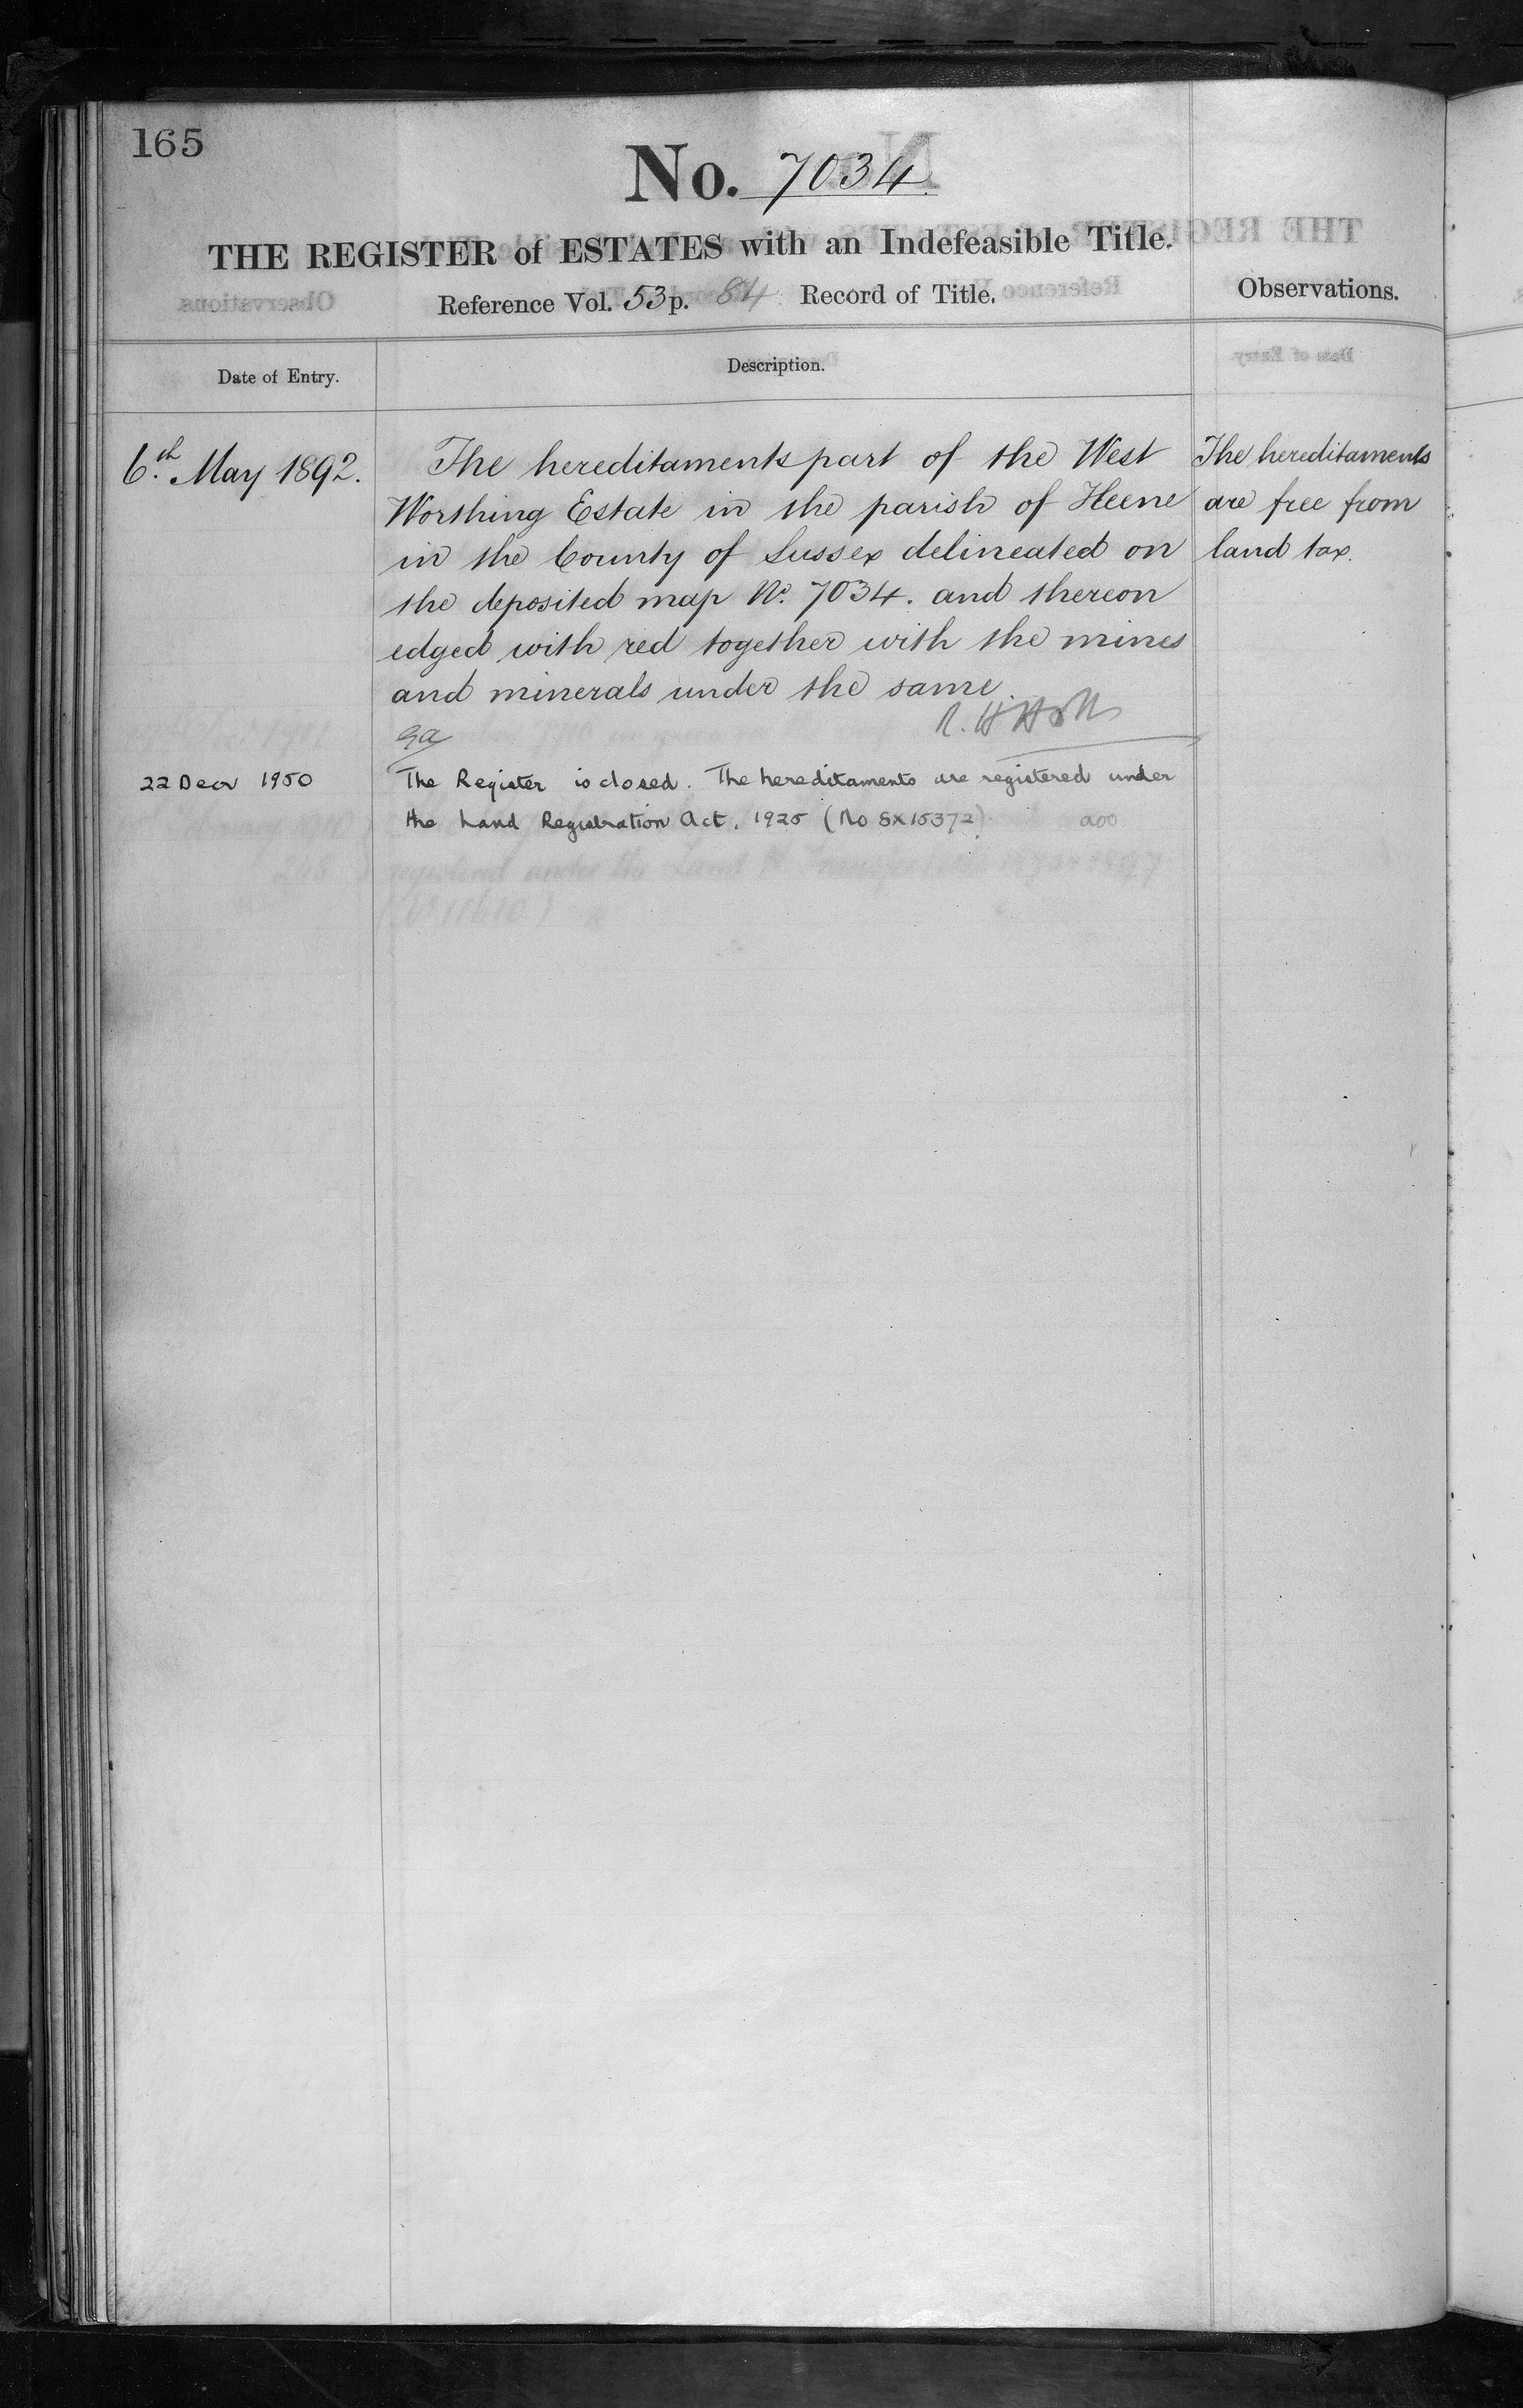 165
No. 7034.
THE REGISTER of ESTATES with an Indefeasible Title.
Reference Vol. 53 p. 84 Record of Title.
Observations.
Date of Entry.
Description.
6.th May 1892.
The hereditaments part of the West
Worthing Estate in the parish of Heene
in the County of Sussex delineated on
the deposited map No. 7034. and thereon
edged with red together with the mines
and minerals under the same.
The hereditaments
are free from
land tax.
22 Decr 1950
The Register is closed. The hereditaments are registered under
the Land Registration Act, 1925 (No SX15372)